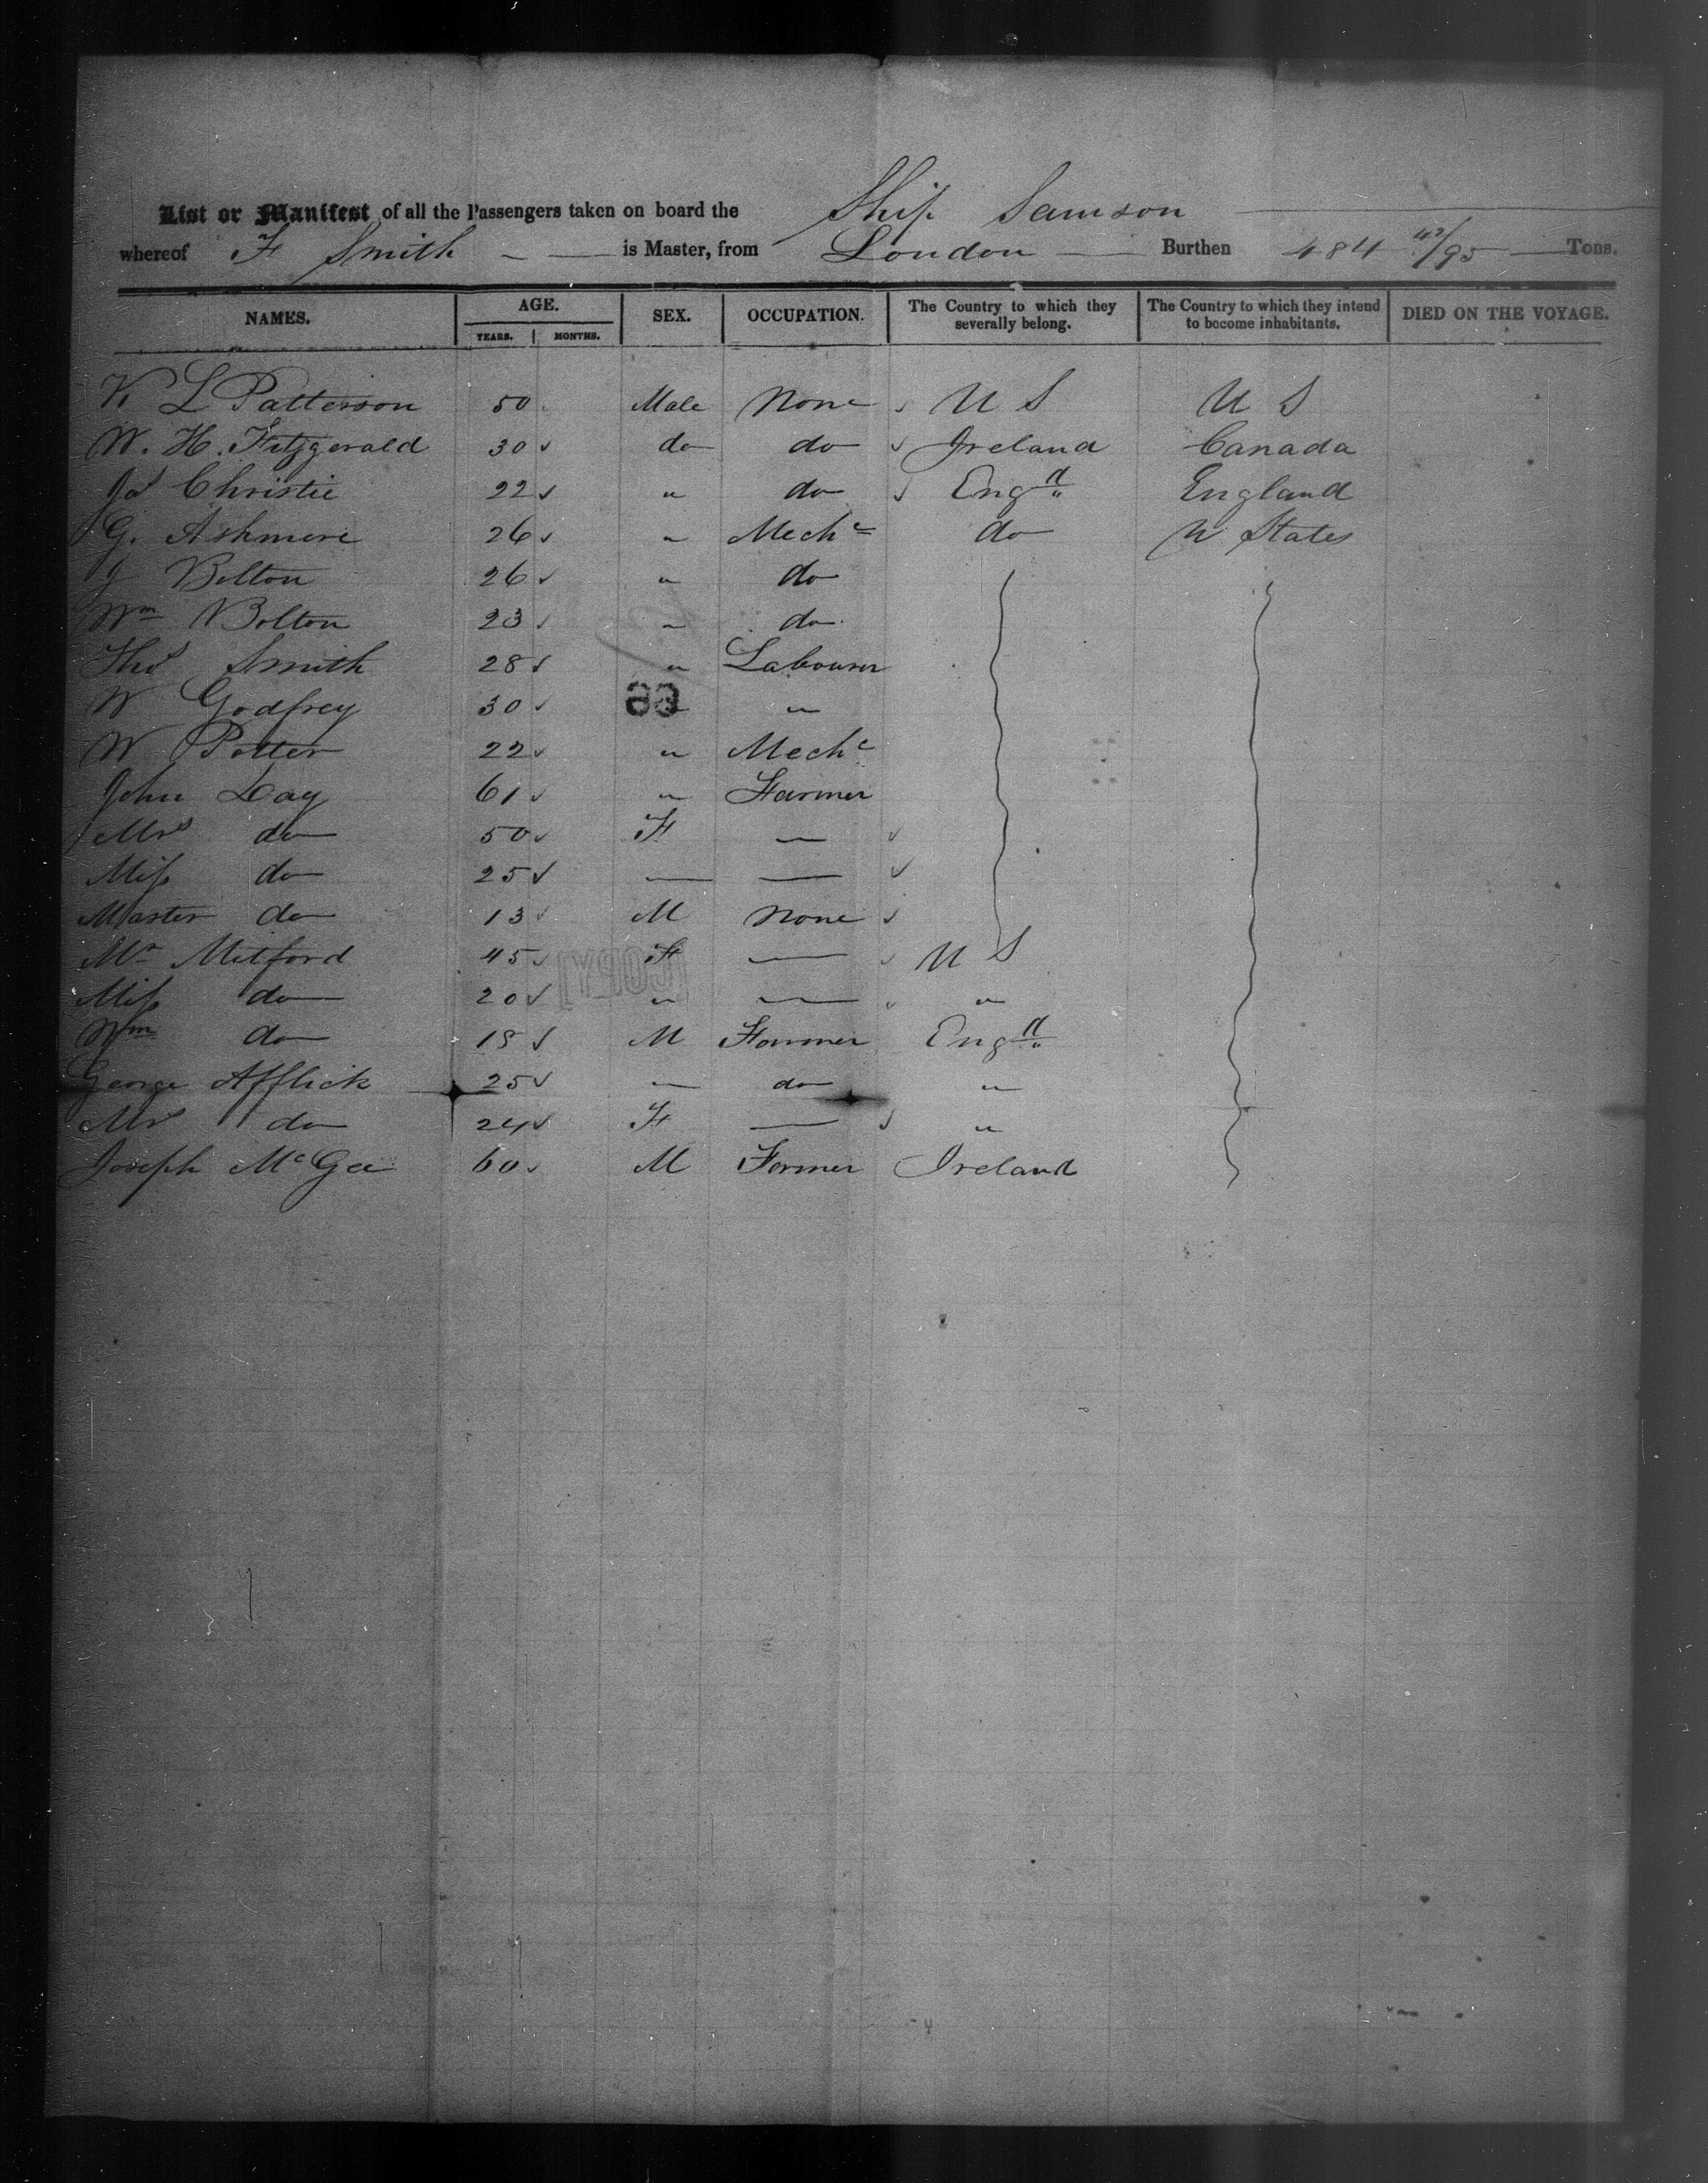 List or Manifest of all the Passengers taken on board the Ship Samson
whereof F Smith is Master, from London Burthen 484 42/95 Tons.
NAMES. AGE. SEX. OCCUPATION. The Country to which they severally belong. The Country to which they intend to become inhabitants. DIED ON THE VOYAGE.
YEARS. MONTHS.
L Patterson 50 Male None U S U S
W. H. Fitzgerald 30 do do Ireland Canada
Js Christie 22 " do Engd England
G. Ashmore 26 " Mechc do U States
J Bolton 26 " do
Wm Bolton 23 " do
Thos Smith 28 " Labourer
W Godfrey 30 "
W Potter 22 " Mechc
John Day 61 " Farmer
Mrs do 50 F —
Miss do 25 — —
Master do 13 M None
Mrs Mitford 45 F — U S
Miss do 20 " — "
Wm do 18 M Farmer Engd
George Afflick 25 — do "
Mrs do 24 F — "
Joseph McGee 60 M Farmer Ireland